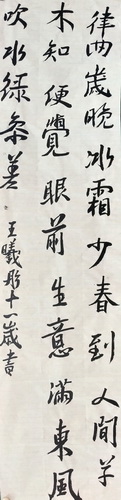 律回歲晚冰霜少春到人間草
木知便覺眼前生意滿東風
吹水綠參差 王曦彤十一歲書